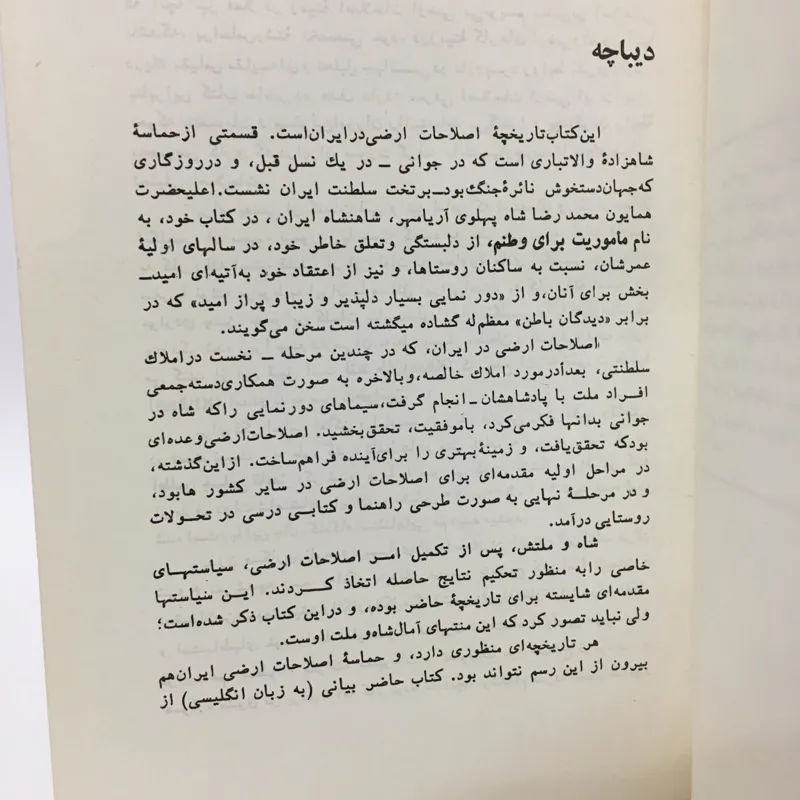 دیباچه
این کتاب تاریخچهٔ اصلاحات ارضی در ایران است. قسمتی از حماسهٔ
شاهزادهٔ والاتباری است که در جوانی ــ در یك نسل قبل، و در روزگاری
که جهان دستخوش نائرهٔ جنگ بود ــ بر تخت سلطنت ایران نشست. اعلیحضرت
همایون محمد رضا شاه پهلوی آریامهر، شاهنشاه ایران ، در کتاب خود، به
نام ماموریت برای وطنم، از دلبستگی وتعلق خاطر خود، در سالهای اولیهٔ
عمرشان، نسبت به ساکنان روستاها، و نیز از اعتقاد خود به آتیه‌ای امید‌ــ
بخش برای آنان، و از «دور نمایی بسیار دلپذیر و زیبا و پراز امید» که در
برابر «دیدگان باطن» معظم‌له گشاده میگشته است سخن می‌گویند.
اصلاحات ارضی در ایران، که در چندین مرحله ــ نخست در املاك
سلطنتی، بعدأ درمورد املاك خالصه، و بالاخره به صورت همکاری دسته‌جمعی
افراد ملت با پادشاهشان ــ انجام گرفت، سیماهای دورنمایی راکه شاه در
جوانی بدانها فکر می‌کرد، با موفقیت، تحقق بخشید. اصلاحات ارضی وعده‌ای
بودکه تحقق یافت، و زمینهٔ بهتری را برای آینده فراهم ساخت. از این گذشته،
در مراحل اولیه مقدمه‌ای برای اصلاحات ارضی در سایر کشور هابود،
و در مرحلهٔ نهایی به صورت طرحی راهنما و کتابی درسی در تحولات
روستایی درآمد.
شاه و ملتش، پس از تکمیل امر اصلاحات ارضی، سیاستهای
خاصی رابه منظور تحکیم نتایج حاصله اتخاذ کردند. این سیاستها
مقدمه‌ای شایسته برای تاریخچهٔ حاضر بوده، و دراین کتاب ذکر شده‌است؛
ولی نباید تصور کرد که این منتهای آمال شاه و ملت اوست.
هر تاریخچه‌ای منظوری دارد، و حماسهٔ اصلاحات ارضی ایران‌هم
بیرون از این رسم نتواند بود. کتاب حاضر بیانی (به زبان انگلیسی) از